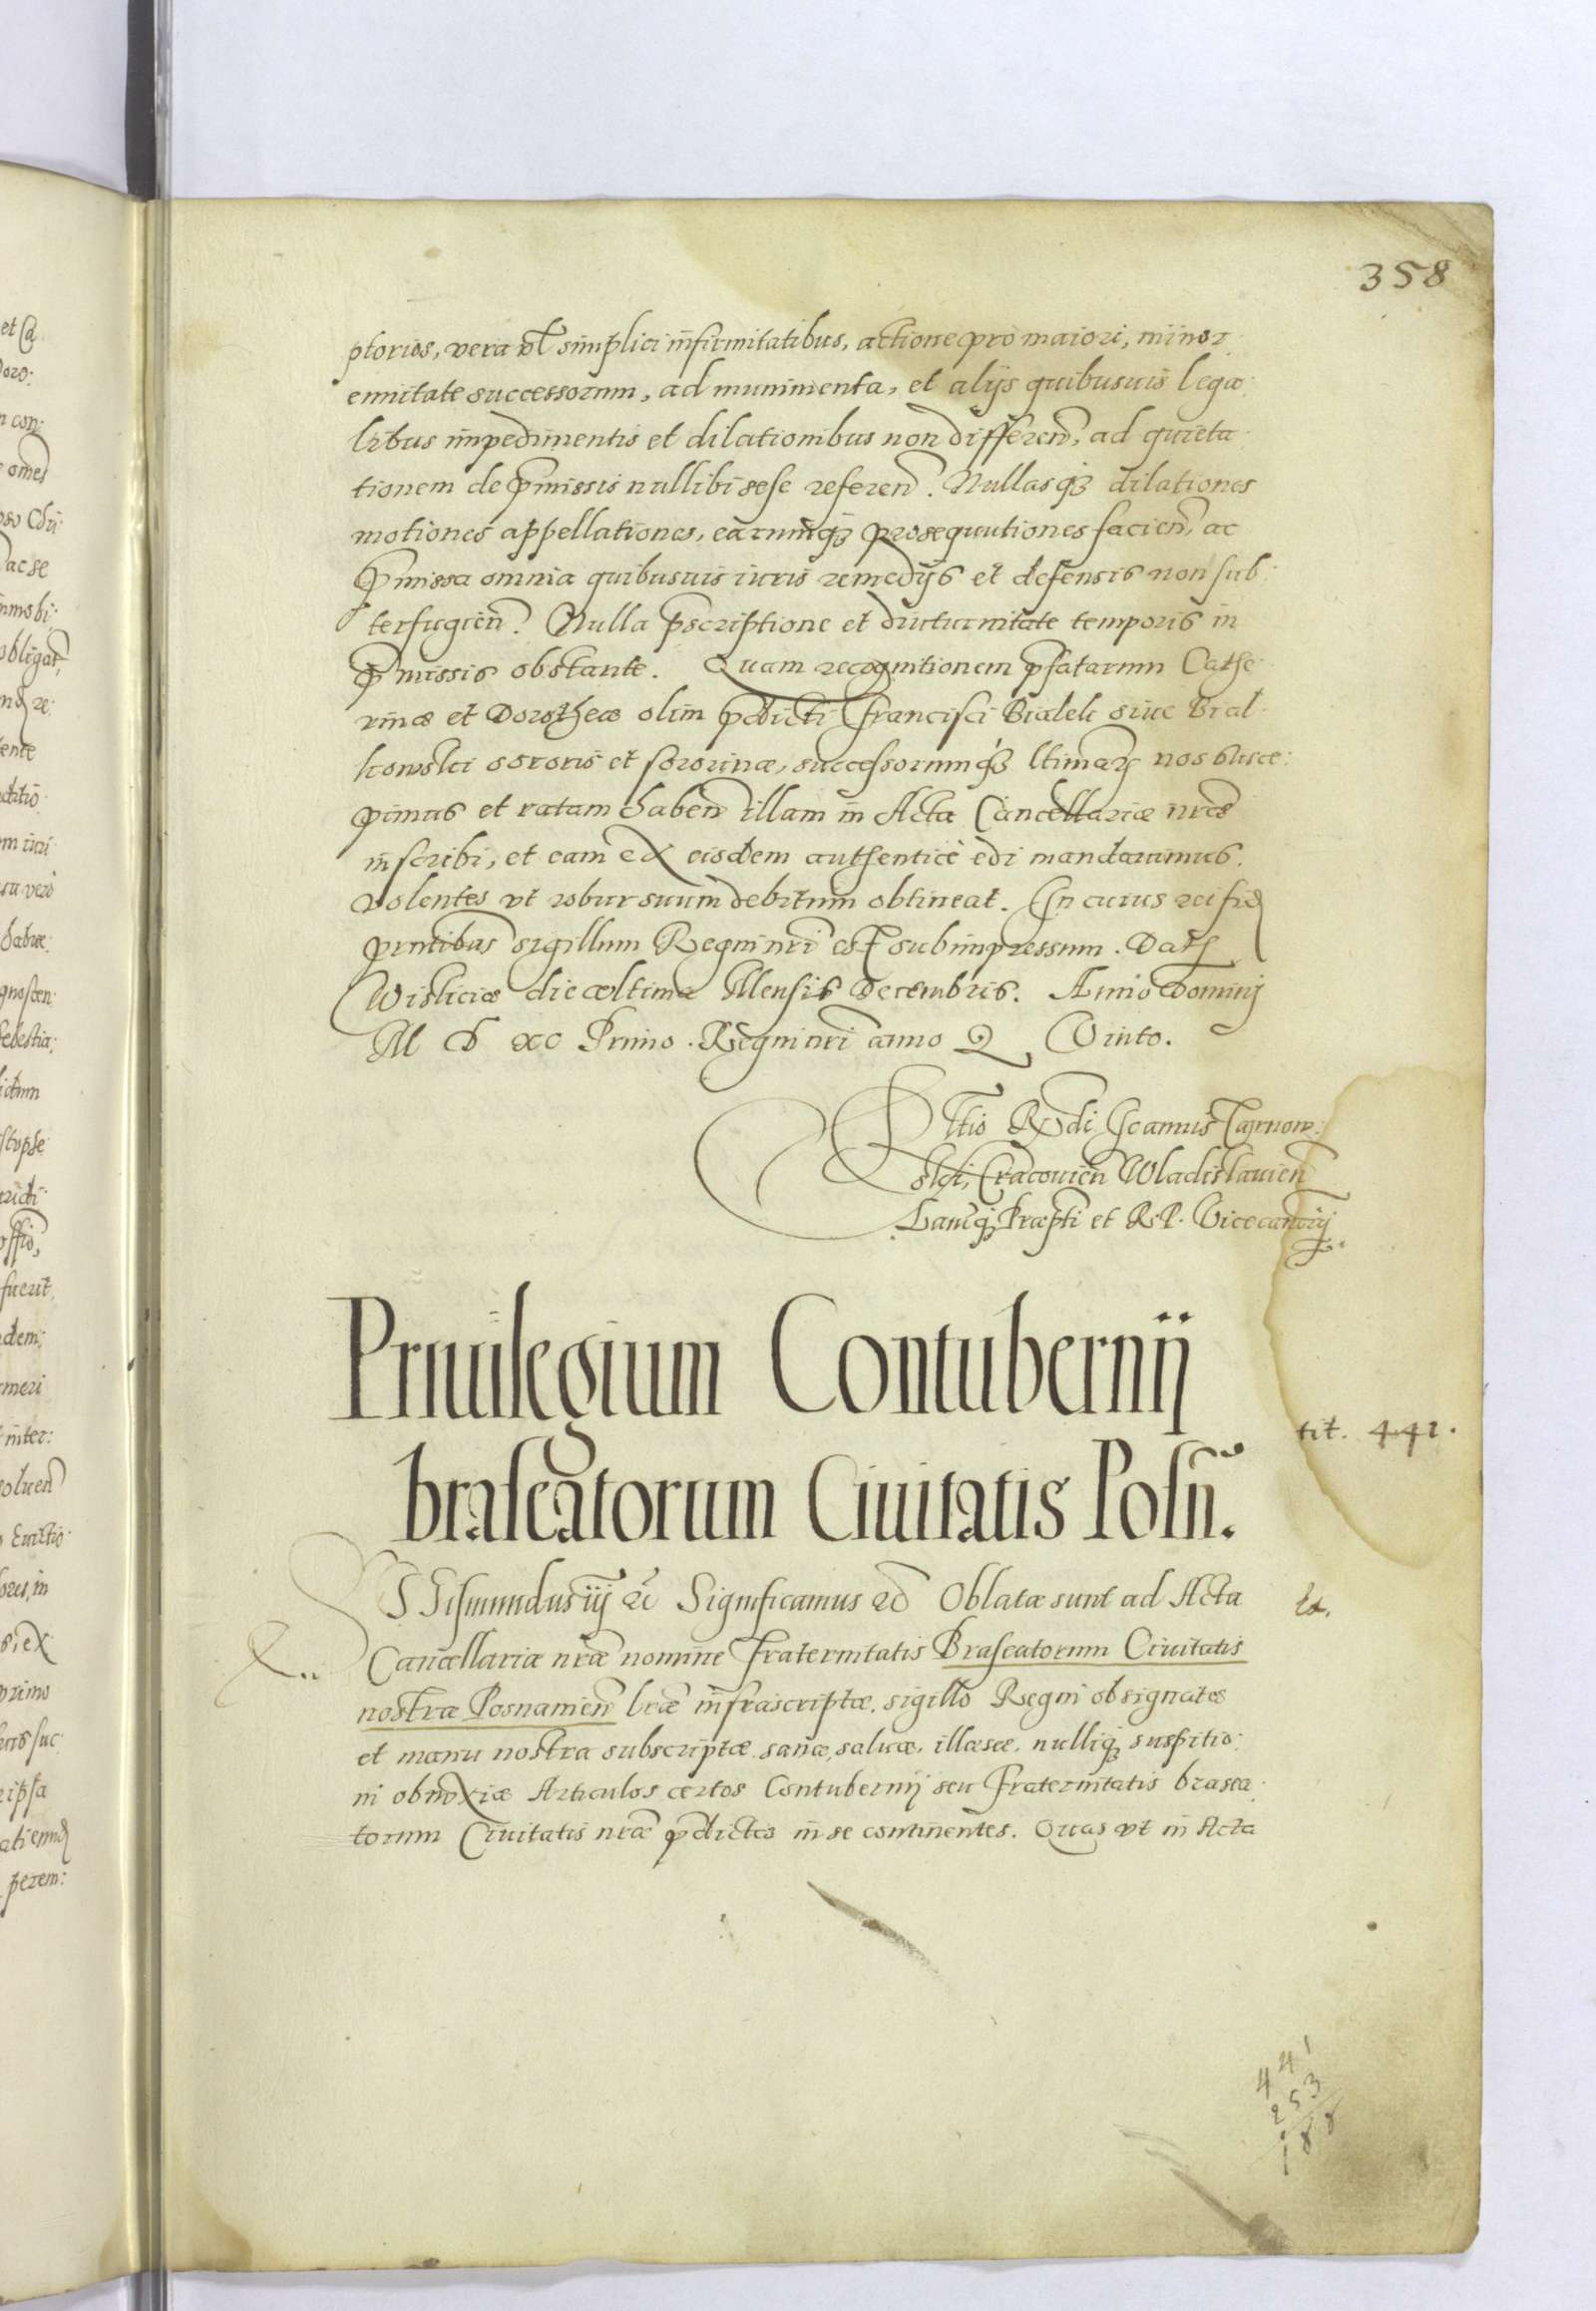 358
ptorios, vera vl simplici infirmitatibus, actione pro maiori, minor
ennitate successorum, ad munimenta, et alijs quibusuis lega:
libus impedimentis et dilationibus non differen, ad quieta
tionem de pmissis nullibi sese referen. Nullasq dilationes
motiones appellationes, earumq prosequutiones facien, ac
pmissa omnia quibusuis iuris remedijs et defensis non sub:
terfugien. Nulla pscriptione et diuturnitate temporis in
pmissis obstante. Quam recognitionem pfatarum Cathe
rinæ et Dorotheæ olim pdicti Francisci Bialek siue Bial
kowski sororis et sororinæ, successorumq ltimar nos susce:
pimus et ratam haben illam in Acta Cancellariæ nræ
inscribi, et eam ex eisdem authenticè edi mandauimus.
volentes vt robur suum debitum obtineat. In cuius rei fid
pntibus sigillum Regni nri est subimpressum. Dat
Wisliciæ die vltima Mensis Decembris. Anno Domini
M D XC Primo. Regni nri anno Q Vinto.
Rltio Rndi Joannis Tarnow:
ski, Cracouien Wladislauien
Lanciq Præpti et R. P. Vicecancrij
Priuilegium Contubernij
braseatorum Ciuitatis Posn.
tit. 441.
SIgismundus iij &c Significamus &c Oblatæ sunt ad Acta
Cancellariæ nræ nomine Fraternitatis Braseatorum Ciuitatis
nostræ Posnanien lræ infrascriptæ, sigillo Regni obsignatæ
et manu nostra subscriptæ sanæ, saluæ, illæsæ, nulliq suspitio:
ni obnoxiæ Articulos certos Contubernij seu Fraternitatis brasea:
torum Ciuitatis nræ pdictæ in se continentes. Quas vt in Acta
441
253
188